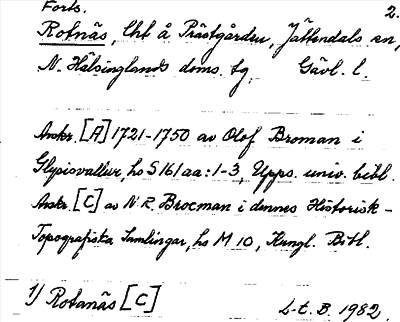 Forts. 2.
Rotnäs, lht å Prästgården, Jättendals sn,
N. Hälsinglands doms. tg, Gävl. l.
Avskr. [A] 1721-1750 av Olof Broman i
Glysisvallur, hs S 161 aa:1-3, Upps. univ. bibl.
Avskr. [C] av N R. Brocman i dennes Historisk-
Topografiska Samlingar, hs M 10, Kungl. Bibl.
1) Rotanäs [C] L-t. B. 1982.